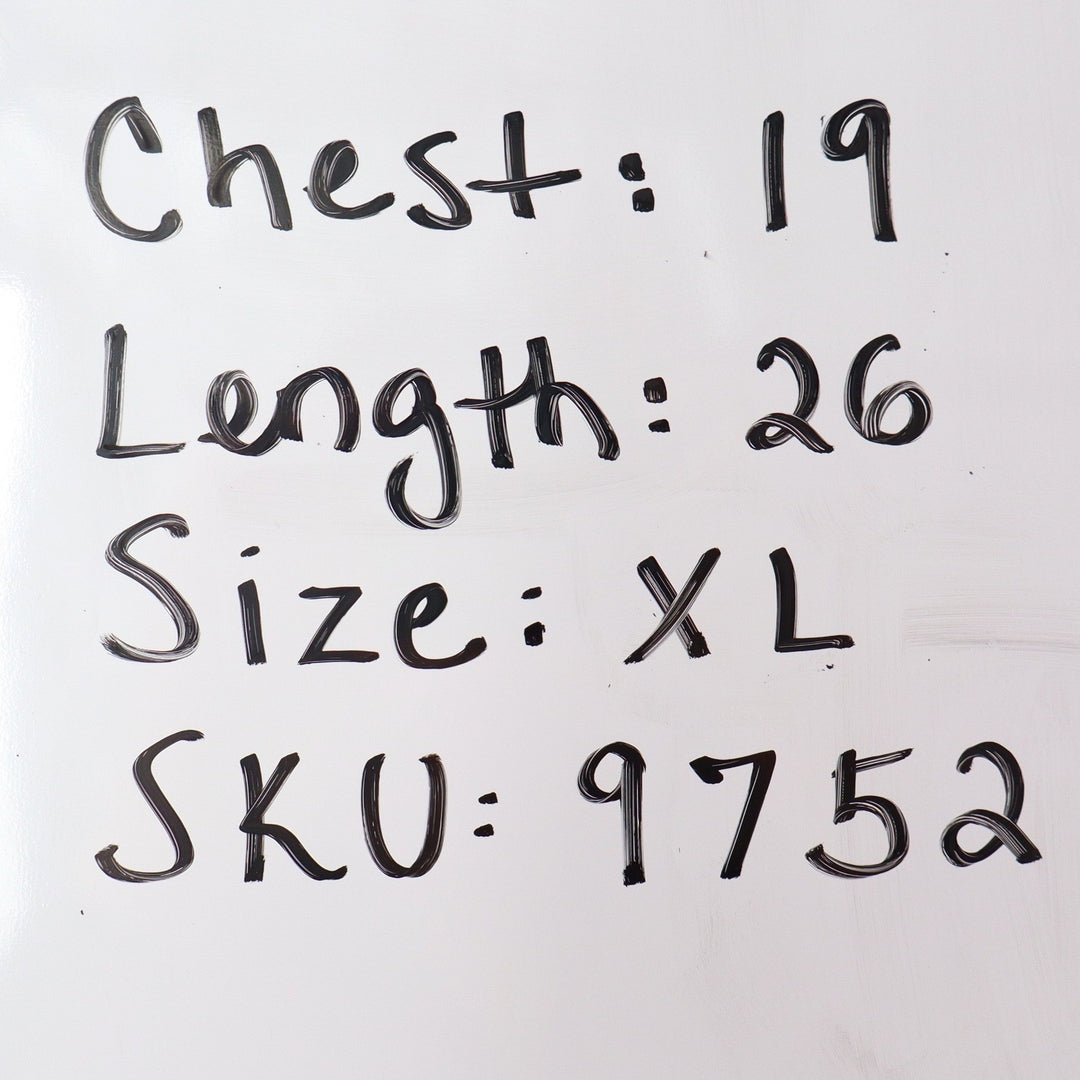 Chest: 19
Length: 26
Size: XL
SKU: 9752